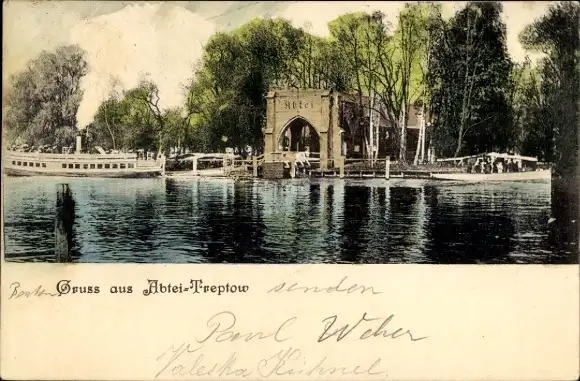 Abtei
Gruss aus Abtei-Treptow senden
Paul Weber
Valeska Kühnel